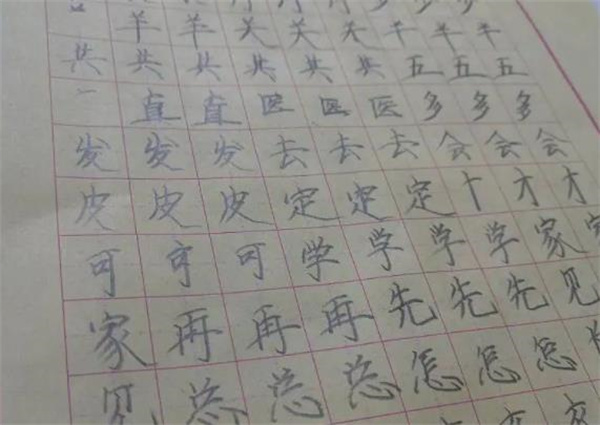 羊 羊 关 关 关 午 午 午
共 共 共 共 共 共 五 五 五
直 直 医 医 医 多 多 多
发 发 发 去 去 去 会 会 会
皮 皮 皮 定 定 定 十 才 才
可 可 可 学 学 学 学 家 家
家 再 再 再 先 先 先 见
见 总 总 总 怎 怎 怎